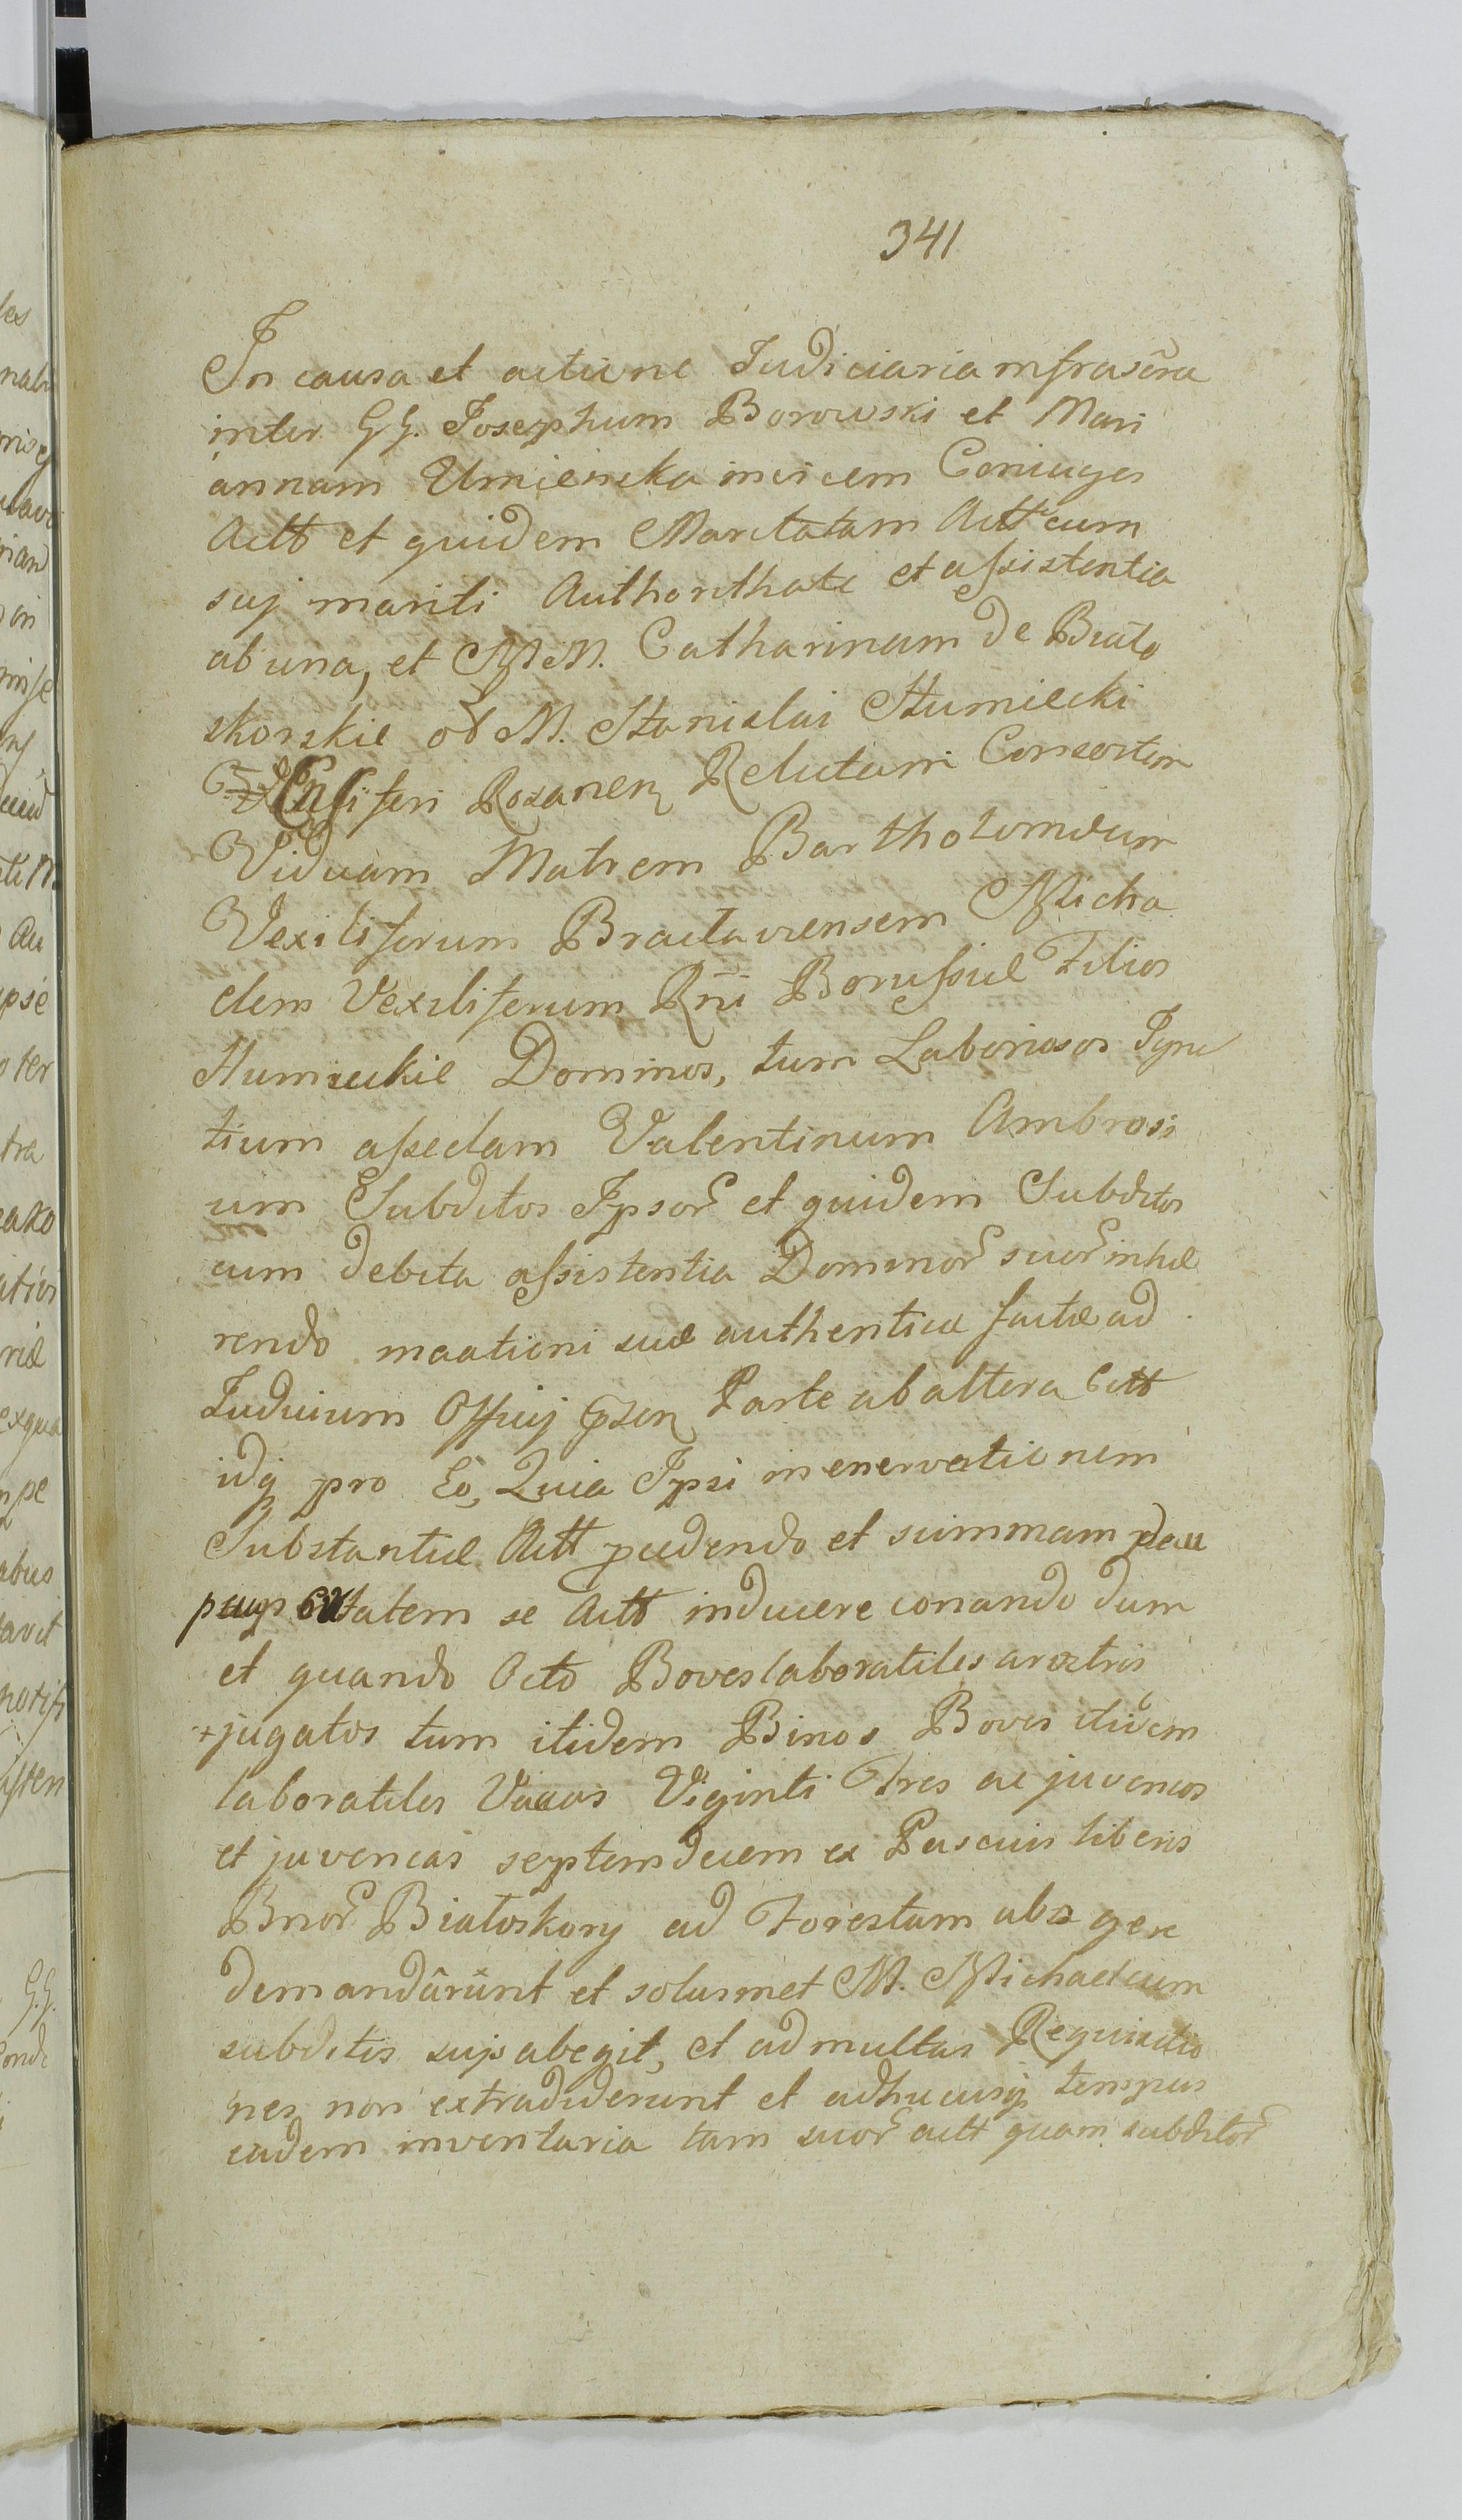 341
In causa et actione Judiciaria infrascra
inter GG. Josephum Borowski et Mari
annam Umienska invicem Coniuges
Actt et quidem Maritatam Actt cum
suj mariti Authorithate et assistentia
ab una, et MM. Catharinam de Biało
skorskie oł M. Stanislai Humiecki
Ensiferi Rozanen Relictam Consortem
Viduam Matrem Bartholomæum
Vexiliferum Braclaviensem Micha
elem Vexiliferum Rni Borussiæ Filios
Humieckie Dominos, tum Laboriosos Igna
tium assedam Valentinum Ambrosi
um Subditos Ipsor et quidem Subditos
cum debita assistentia Dominor suor inhæ
rendo maationi suæ authenticæ factæ ad
Judicium Officij Pnsen Parte ab altera Citt
idq pro Eo, Quia Ipsi in enervationem
Substantiæ Actt pcedendo et summam
tatem se Actt inducere conando dum
et quando Octo Boves laboratiles aratris
+jugatos tum itidem Binos Boves itidem
laboratiles Vaccas Viginti Tres ac juvencos
et juvencas septemdecem ex Pascuis liberis
Bnor Białoskory ad Forestam abigere
demandârûnt et solusmet M. Michael cum
subditis suis abegit, et ad multas Requisitio
nes non extradiderunt et adhucusq tempus
eadem inventaria tam suor actt quam subditor